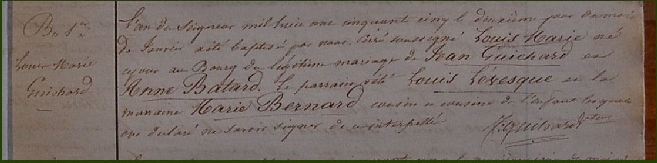 Bs 1er
Louis Marie
Guichard
L'an du Seigneur mil huit cent cinquante cinq le deuxième jour du mois
de Janvier a été baptisé par nous Curé soussigné Louis Marie né
ce jour au Bourg du légitime mariage de Jean Guichard et
Anne Batard. Le parrain a été Louis Levesque et la
marraine Marie Bernard cousin et cousine de l'enfant lesquels
ont déclaré ne savoir signer de ce interpellé